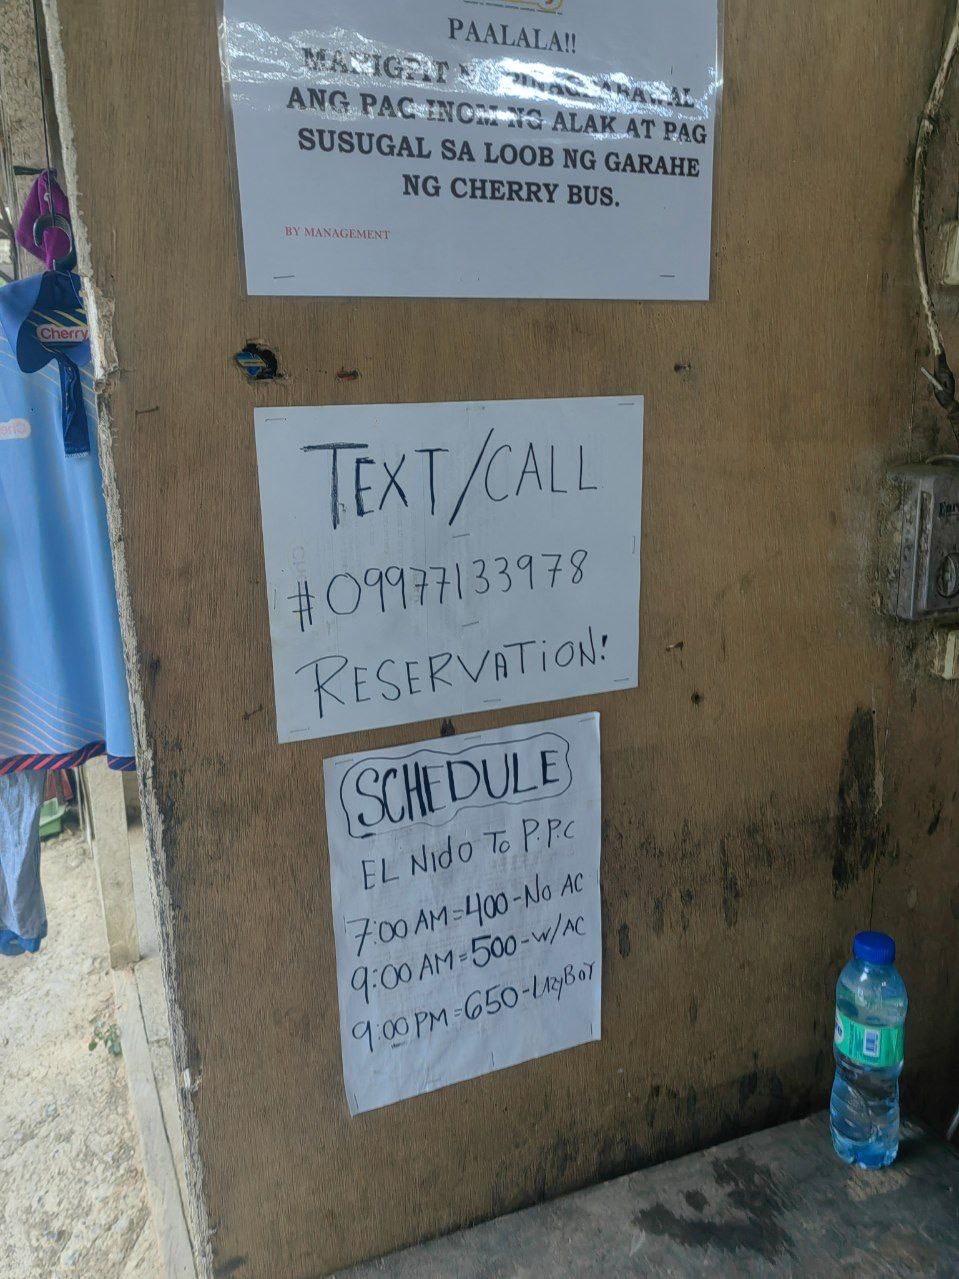 PAALALA!!
MAHIGPIT
ANG PAG INOM NG ALAK AT PAG
SUSUGAL SA LOOB NG GARAHE
NG CHERRY BUS.
BY MANAGEMENT
Cherry
TEXT/CALL
#09977133978
RESERVATION!
SCHEDULE
EL NIDO TO P.P.C
7:00 AM = 400 - NO AC
9:00 AM = 500 - W/AC
9:00 PM = 650 - LAZYBOY